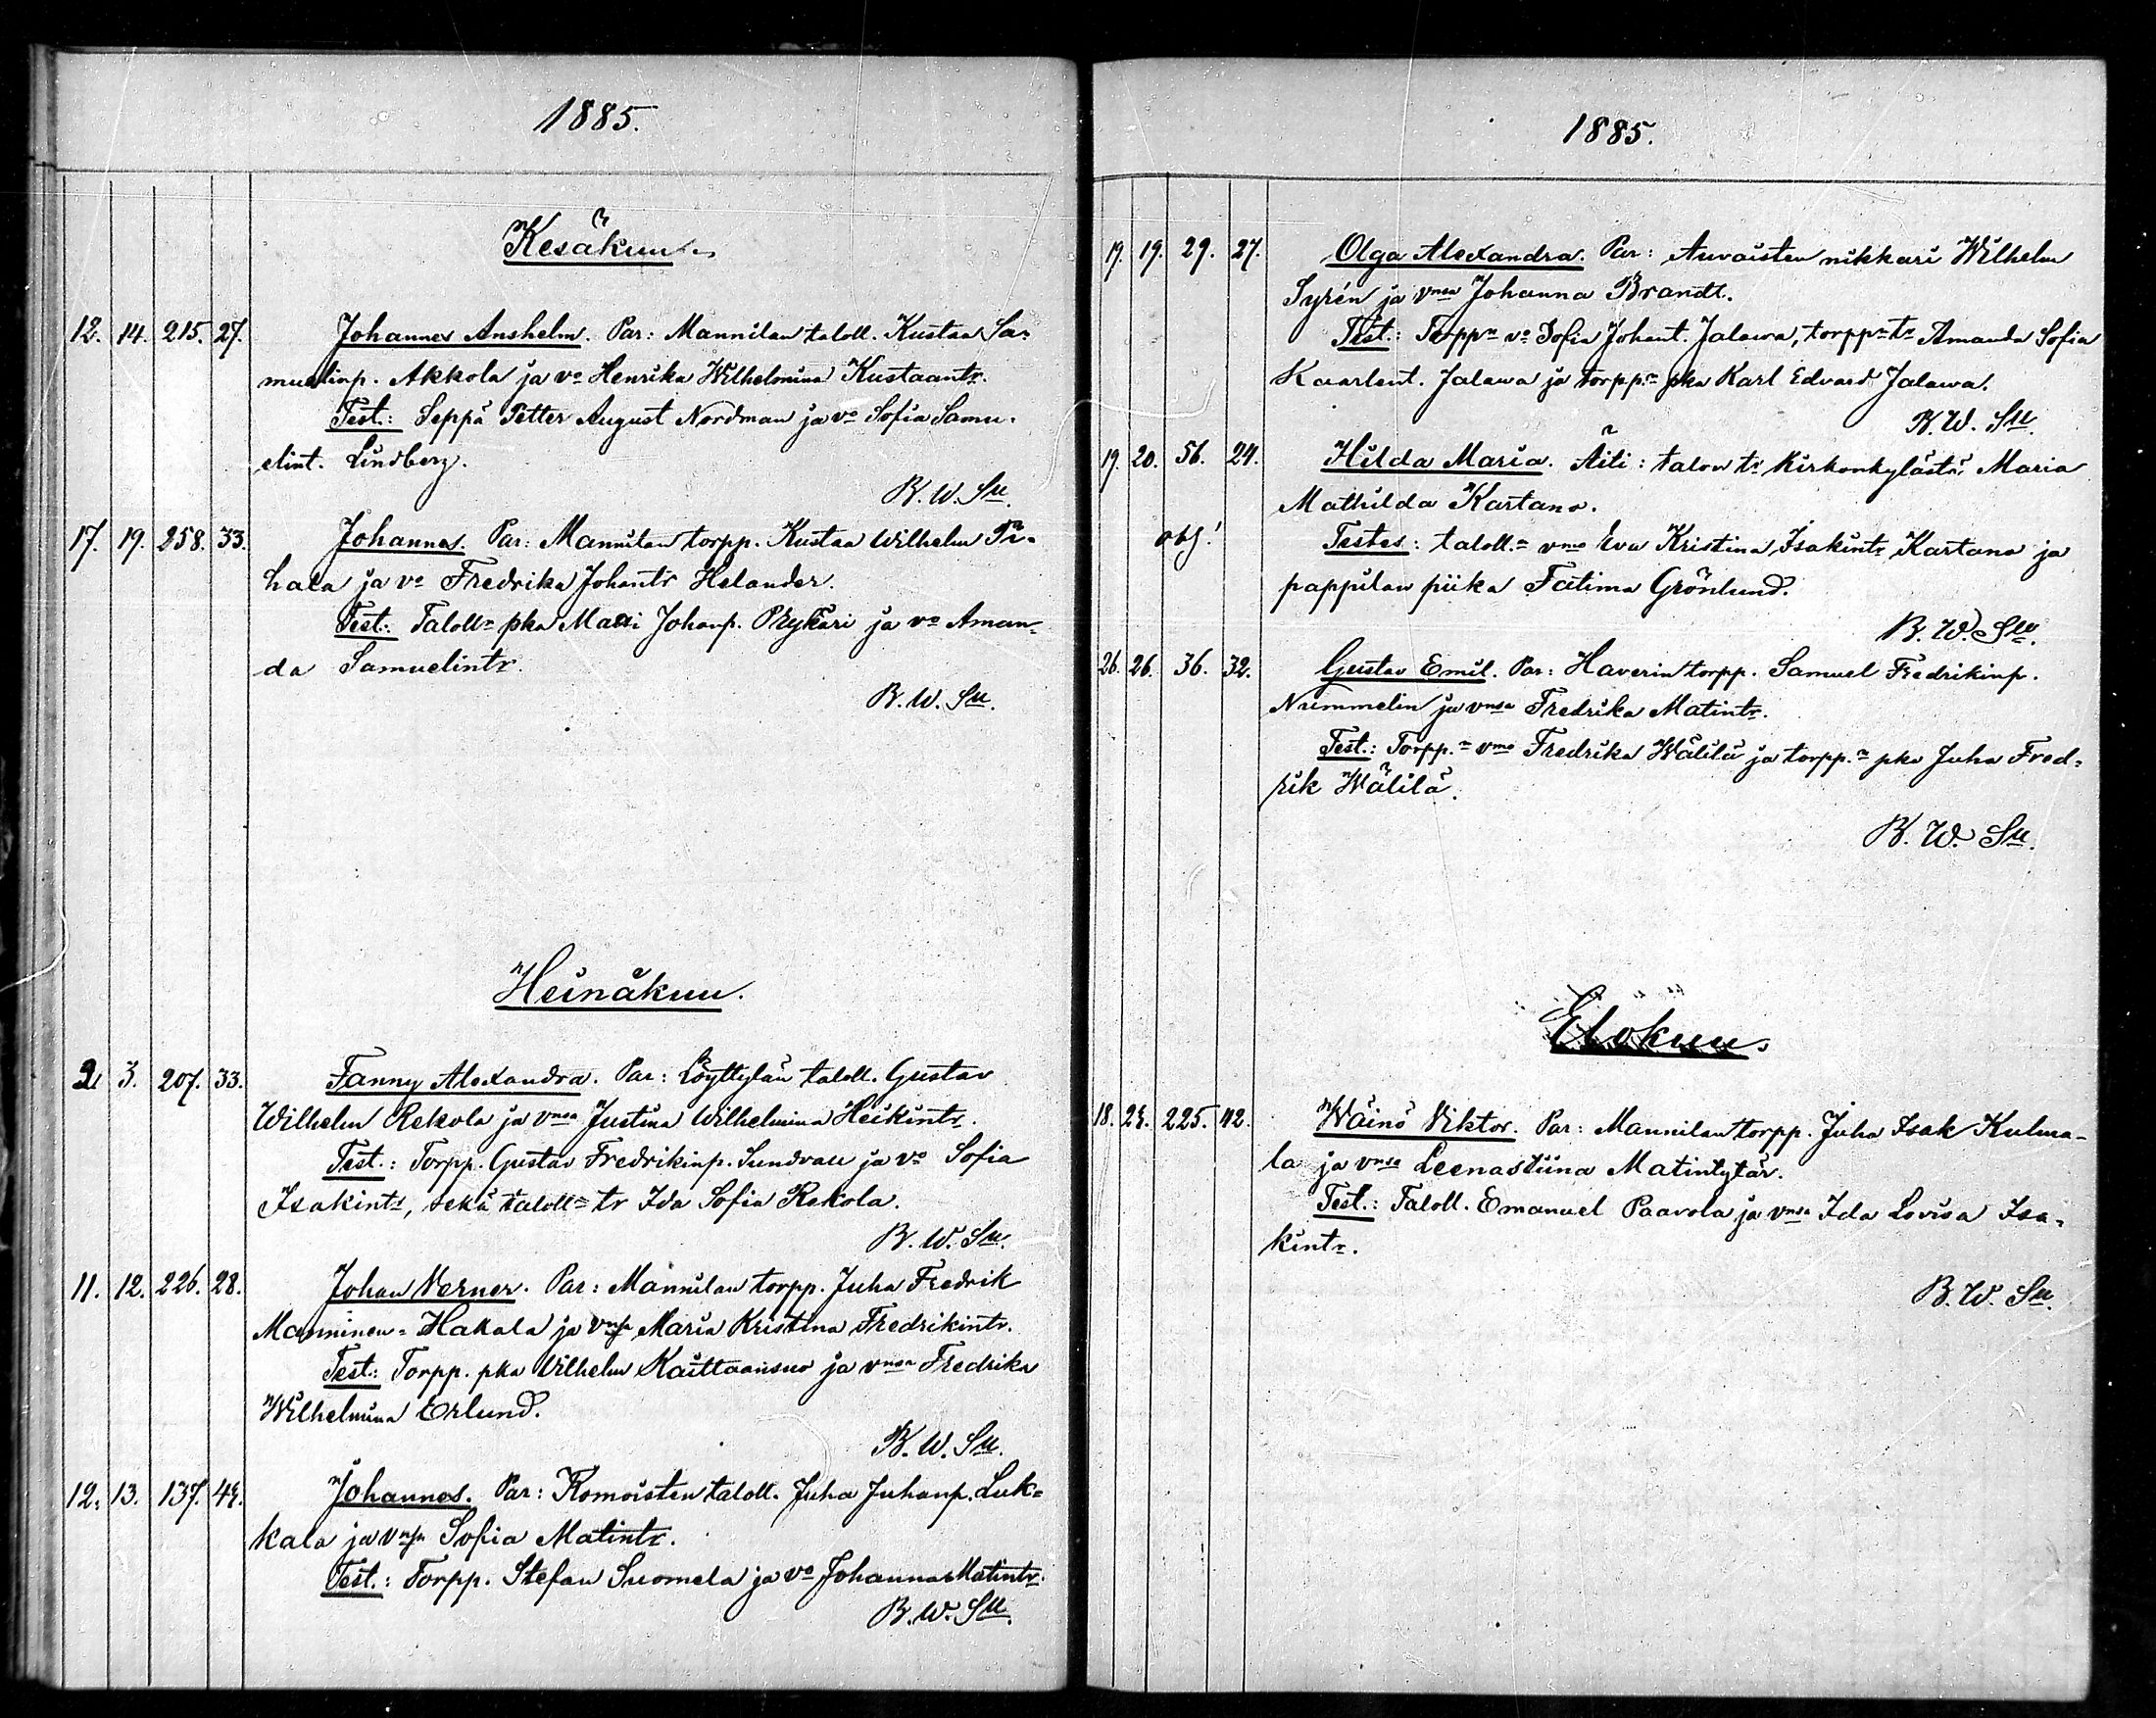 1885.
Kesäkuu.
12. 14. 215. 27. Johannes Anshelm. Par: Mannilan taloll. Kustaa Sa-
muelinp. Akkola ja vo Henrika Wilhelmina Kustaantr.
Test.: Seppä Petter August Nordman ja vo Sofia Samu-
elint. Lindberg.
B. W. Su.
17. 19. 258. 33. Johannes. Par: Mannilan torpp. Kustaa Wilhelm
hala ja vo Fredrika Johantr Helander.
Test.: Taloll:n pka Matti Johanp. Prykäri ja vo Aman-
da Samuelintr.
B. W. Su.
Heinäkuu.
2. 3. 207. 33. Fanny Alexandra. Par: Löyttylän taloll. Gustav
Wilhelm Rekola ja vmsa Justina Wilhelmina Heikintr.
Test.: Torpp. Gustav Fredrikinp. Sundvall ja vo Sofia
Isakintr, sekä taloll:n tr Ida Sofia Rekola.
B. W. Su.
11. 12. 226. 28. Johan Verner. Par: Mannilan torpp. Juha Fredrik
Manninen-Hakala ja vmsa Maria Kristina Fredrikintr.
Test.: Torpp. pka Vilhelm Kaittaansuo ja vmsa Fredrika
Wilhelmina Erlund.
B. W. Su.
12. 13. 137. 44. Johannes. Par: Komoisten taloll. Juha Juhanp. Luk-
kala ja vmsa Sofia Matintr.
Test.: Torpp. Stefan Suomela ja vo Johanna Matintr.
B. W. Su.
1885.
19. 19. 29. 27. Olga Alexandra. Par: Auvaisten nikkari Wilhelm
Syrén ja vmsa Johanna Brandt.
Test.: Torpp:n vo Sofia Johant. Jalawa, torpp:n tr Amanda Sofia
Kaarlent. Jalawa ja torpp:n pka Karl Edvard Jalawa.
B. W. Su.
19. 20. 56. 24. Hilda Maria. Äiti: talon tr Kirkonkylästä Maria
Mathilda Kartano.
obs! Testes: taloll.n vmo Eva Kristina Isakintr Kartano ja
pappilan piika Fatima Grönlund.
B. W. Su.
26. 26. 36. 32. Gustav Emil. Par: Haverin torpp. Samuel Fredrikinp.
Nummelin ja vmsa Fredrika Matintr.
Test.: Torpp.n vmo Fredrika Wälilä ja torpp.n pka Juha Fred-
rik Wälilä.
B. W. Su.
Elokuu.
18. 24. 225. 42. Wäinö Viktor. Par: Mannilan torpp. Juha Isak Kulma-
la ja vmsa Leenastiina Matintytär.
Test.: Taloll. Emanuel Paavola ja vmsa Ida Lovisa Isa-
kintr.
B. W. Su.